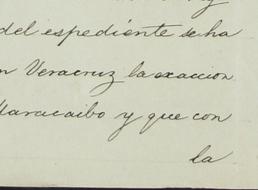 del espediente se ha
n Veracruz la exaccion
Maracaibo y que con
la